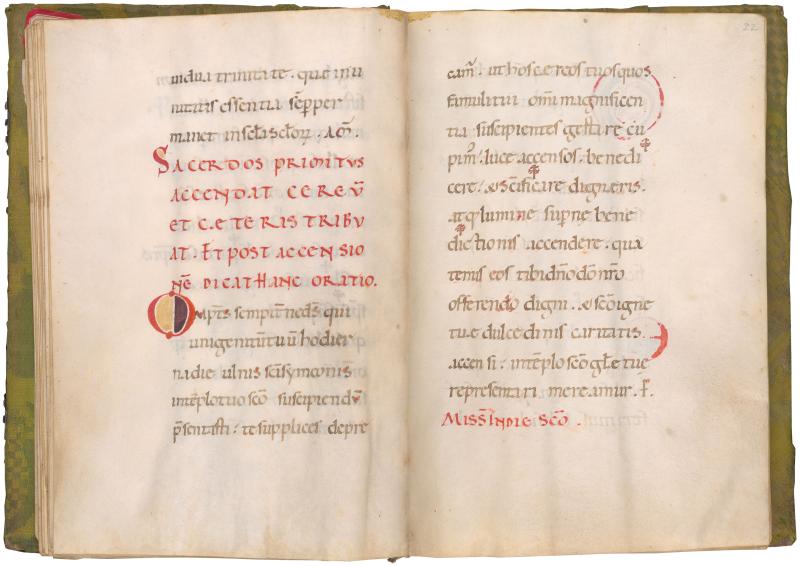 uidua trinitate . que inui
nituis essentia sēp per
manet in sc̄la sc̄lorꝝ . Am̄.
SACERDOS PRIMITUS
ACCENDAT CEREŪ
ET CETERIS TRIBU
AT. ET POST ACCENSIO
NĒ DICAT HANC ORATIO.
Omp̄ts sempitn̄e ds̄ qui
unigenitū tuū hodier
na die ulnis sc̄i symeonis
in tēplo tuo sc̄o suscipiendū
p̄sentasti : te supplices depre
22
cam̄ . ut hos cereos tuos quos
famuli tui om̄i magnificen
tia suscipientes gestare cu
piun̄ . luce accensos . bene di
cere . & sc̄ificare digneris .
atq; lumine supn̄e bene
dictionis accendere . qua
tenis eos tibi dn̄o dō nr̄o
offerendo digni . & sc̄o igne
tue dulcedinis caritatis .
accensi : in tēplo sc̄o gl̄e tue
representari mereamur . P̄.
MISS̄ IN DIE SC̄O .